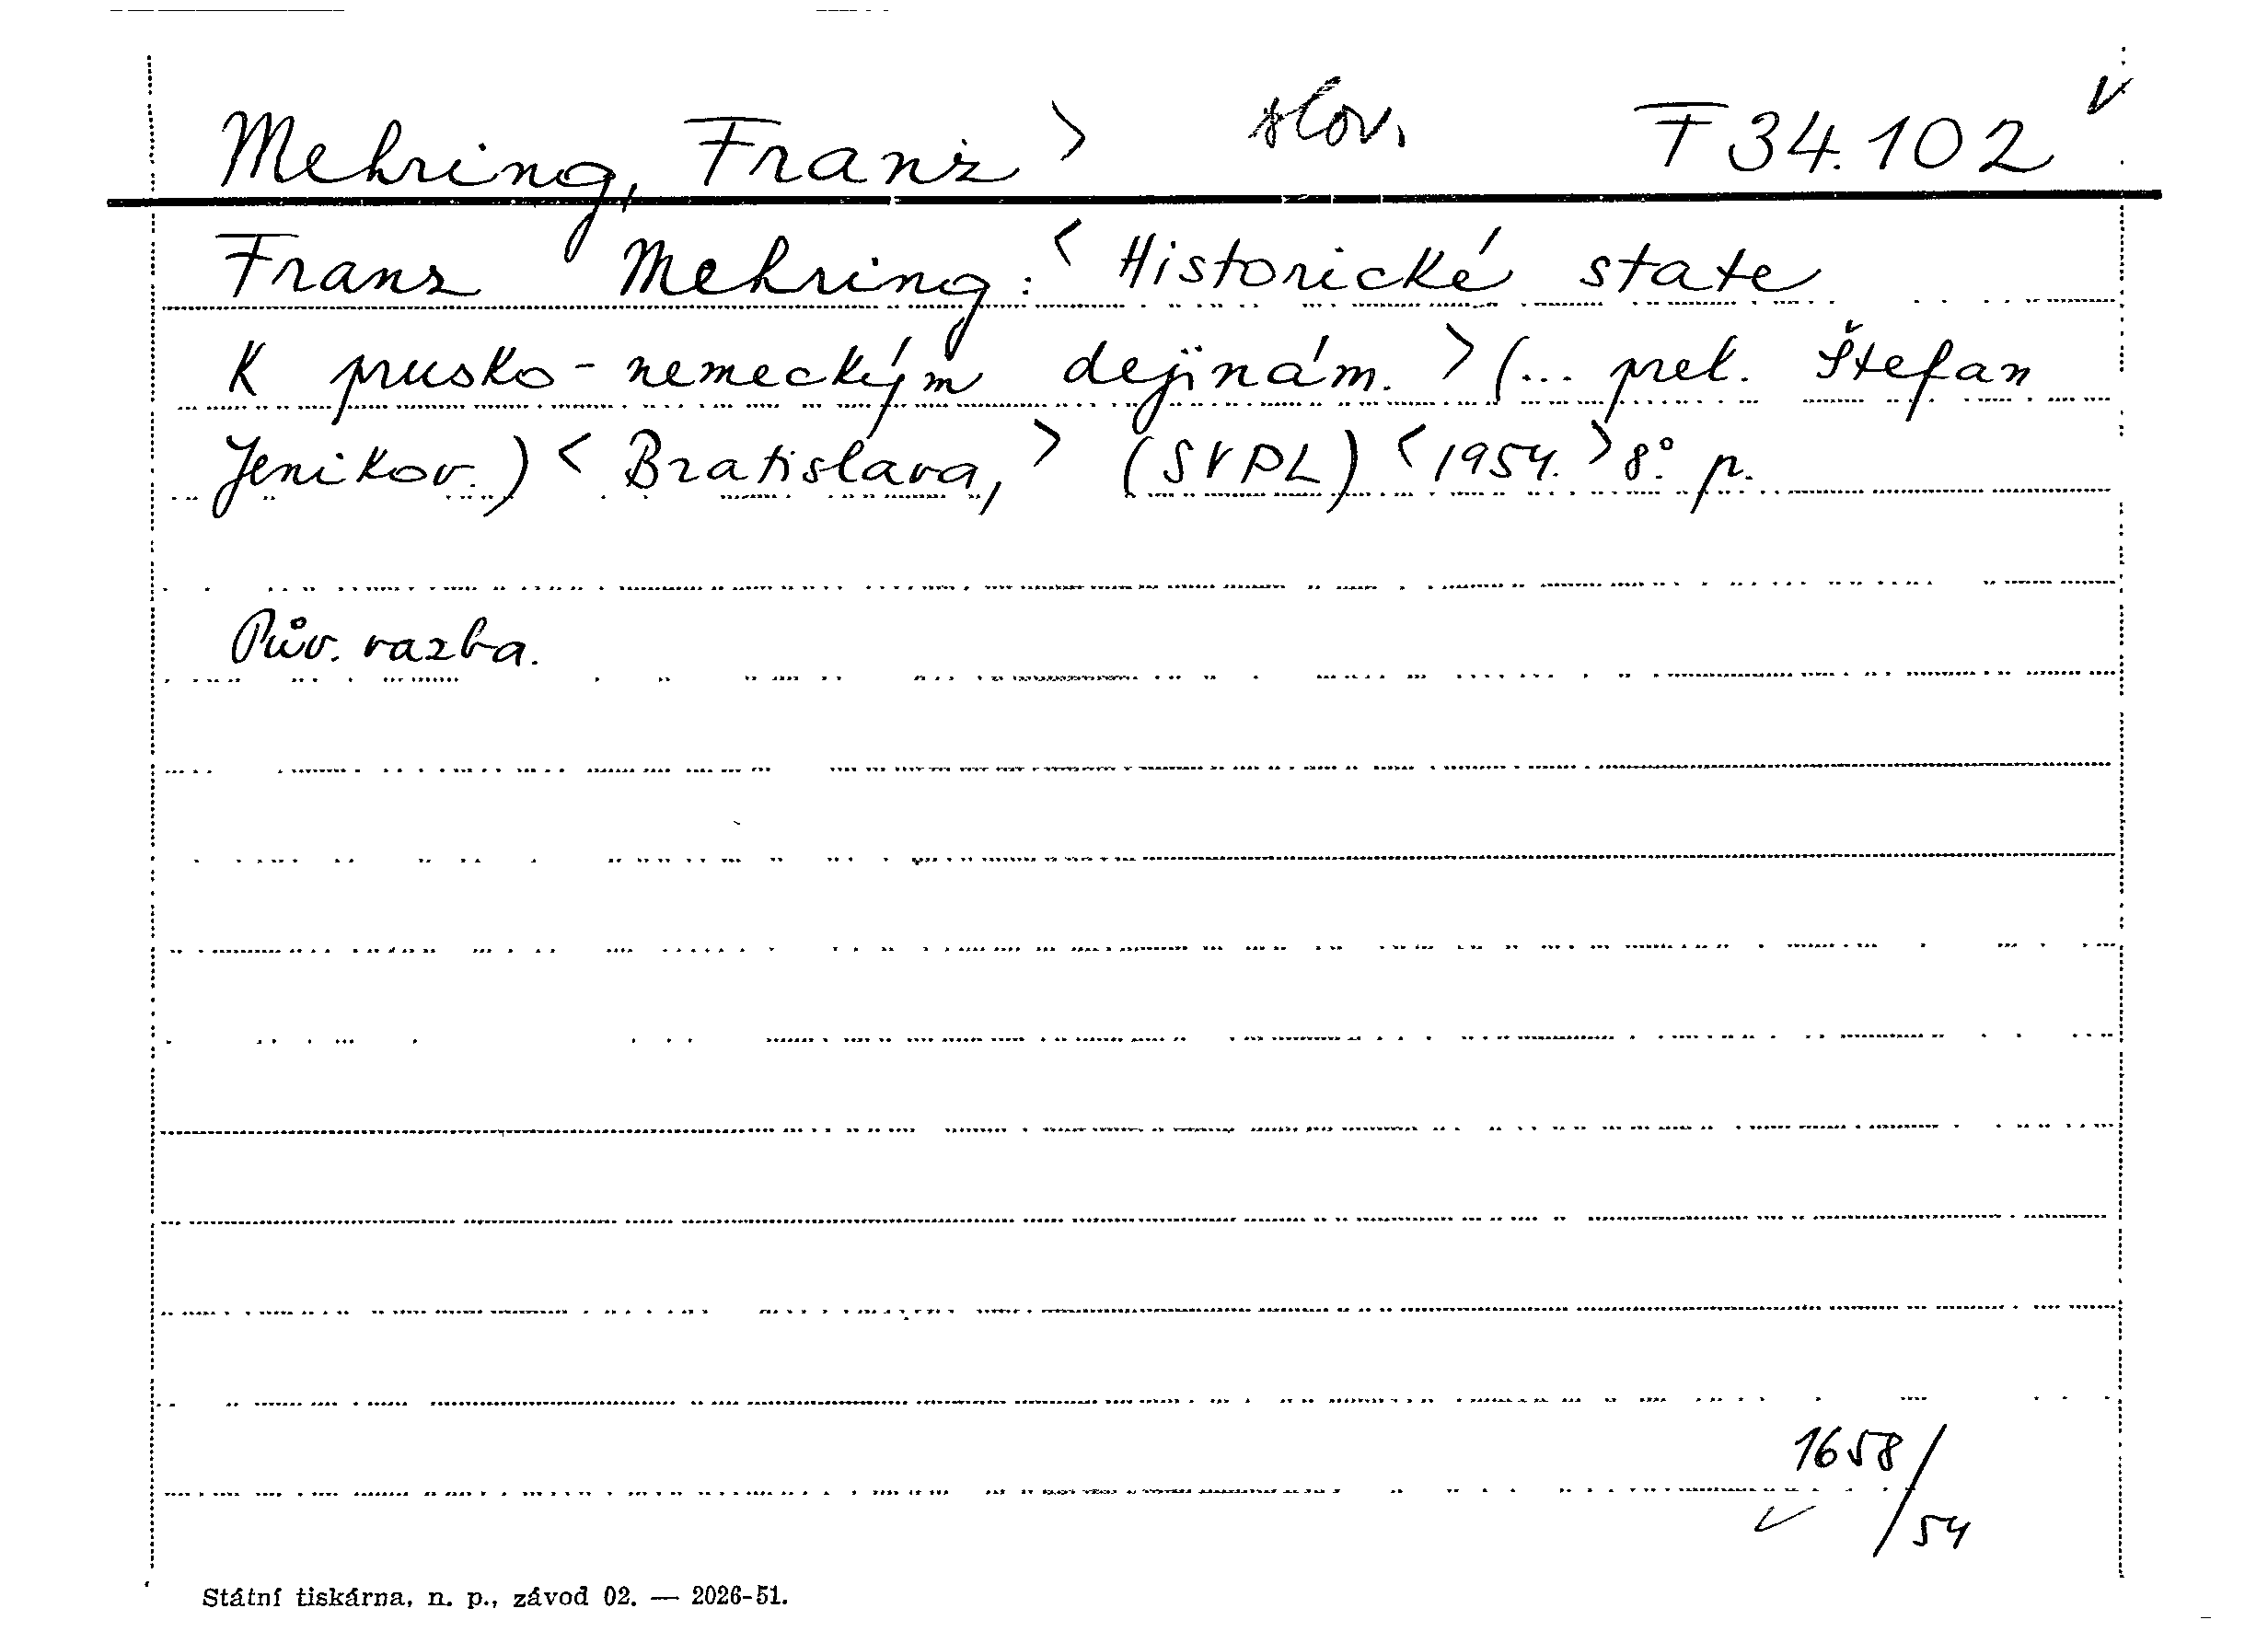 Mehring, Franz > slov. F 34.102 v
Franz Mehring: < Historické state
K prusko-nemeckým dejinám. > (... prel. Štefan
Jenikov.) < Bratislava, > (SVPL) < 1954. > 8°. p.
Pův. vazba.
1658/
✓ 54
Státní tiskárna, n. p., závod 02. — 2026-51.